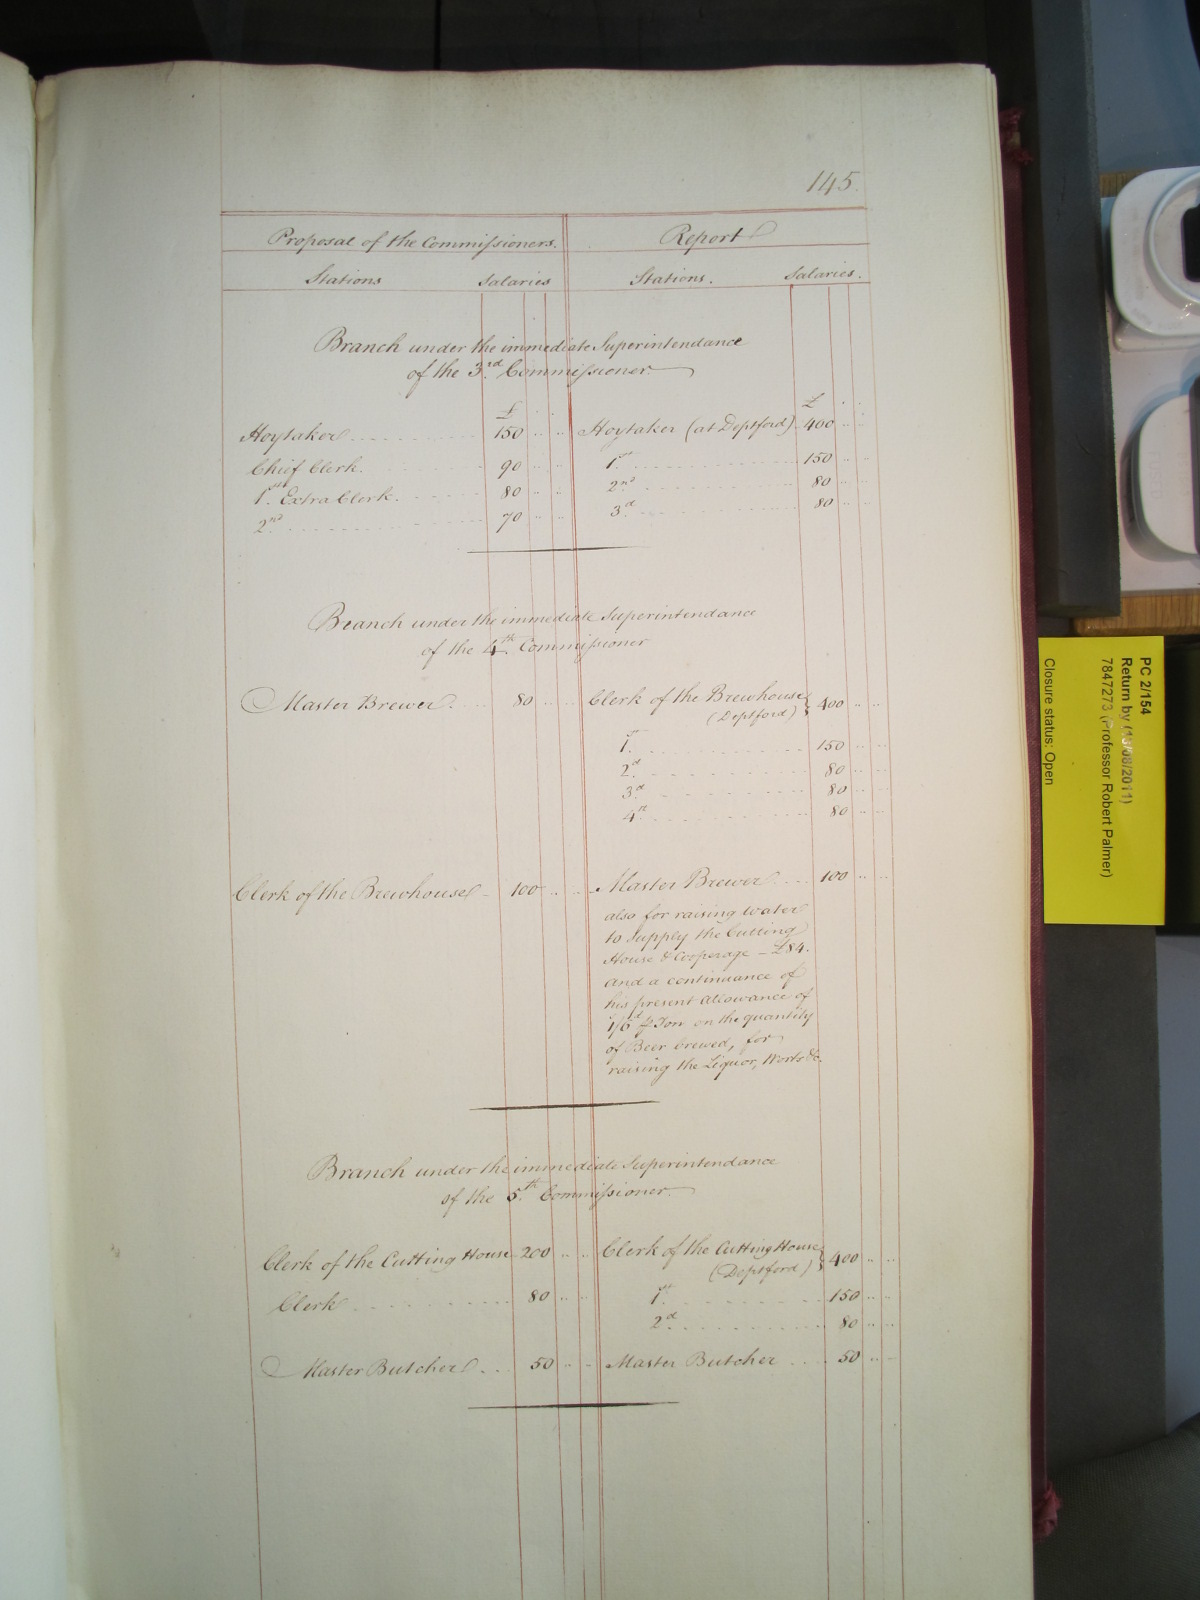 145.
Proposal of the Commissioners. Report
Stations Salaries Stations. Salaries.
Branch under the immediate Superintendance
of the 3.rd Commissioner.
£ £
Hoytaker 150 Hoytaker (at Deptford) 400
Chief Clerk. 90 1st. 150
1st. Extra Clerk. 80 2nd. 80
2nd 70 3.d 80
Branch under the immediate Superintendance
of the 4th. Commissioner
Master Brewer. 80 Clerk of the Brewhouse
(Deptford) } 400
1st. 150
2.d 80
3.d 80
4th. 80
Clerk of the Brewhouse 100 Master Brewer 100
also for raising water
to supply the Cutting
House & Cooperage - £84.
and a continuance of
his present allowance of
1/6d. p Ton on the quantity
of Beer brewed, for
raising the Liquor, Worts &c.
Branch under the immediate Superintendance
of the 5.th Commissioner.
Clerk of the Cutting House 200 Clerk of the Cutting House
(Deptford) } 400
Clerk 80 1st. 150
2.d 80
Master Butcher 50 Master Butcher 50
PC 2/154
Return by (13/08/2011)
7847273 (Professor Robert Palmer)
Closure status: Open